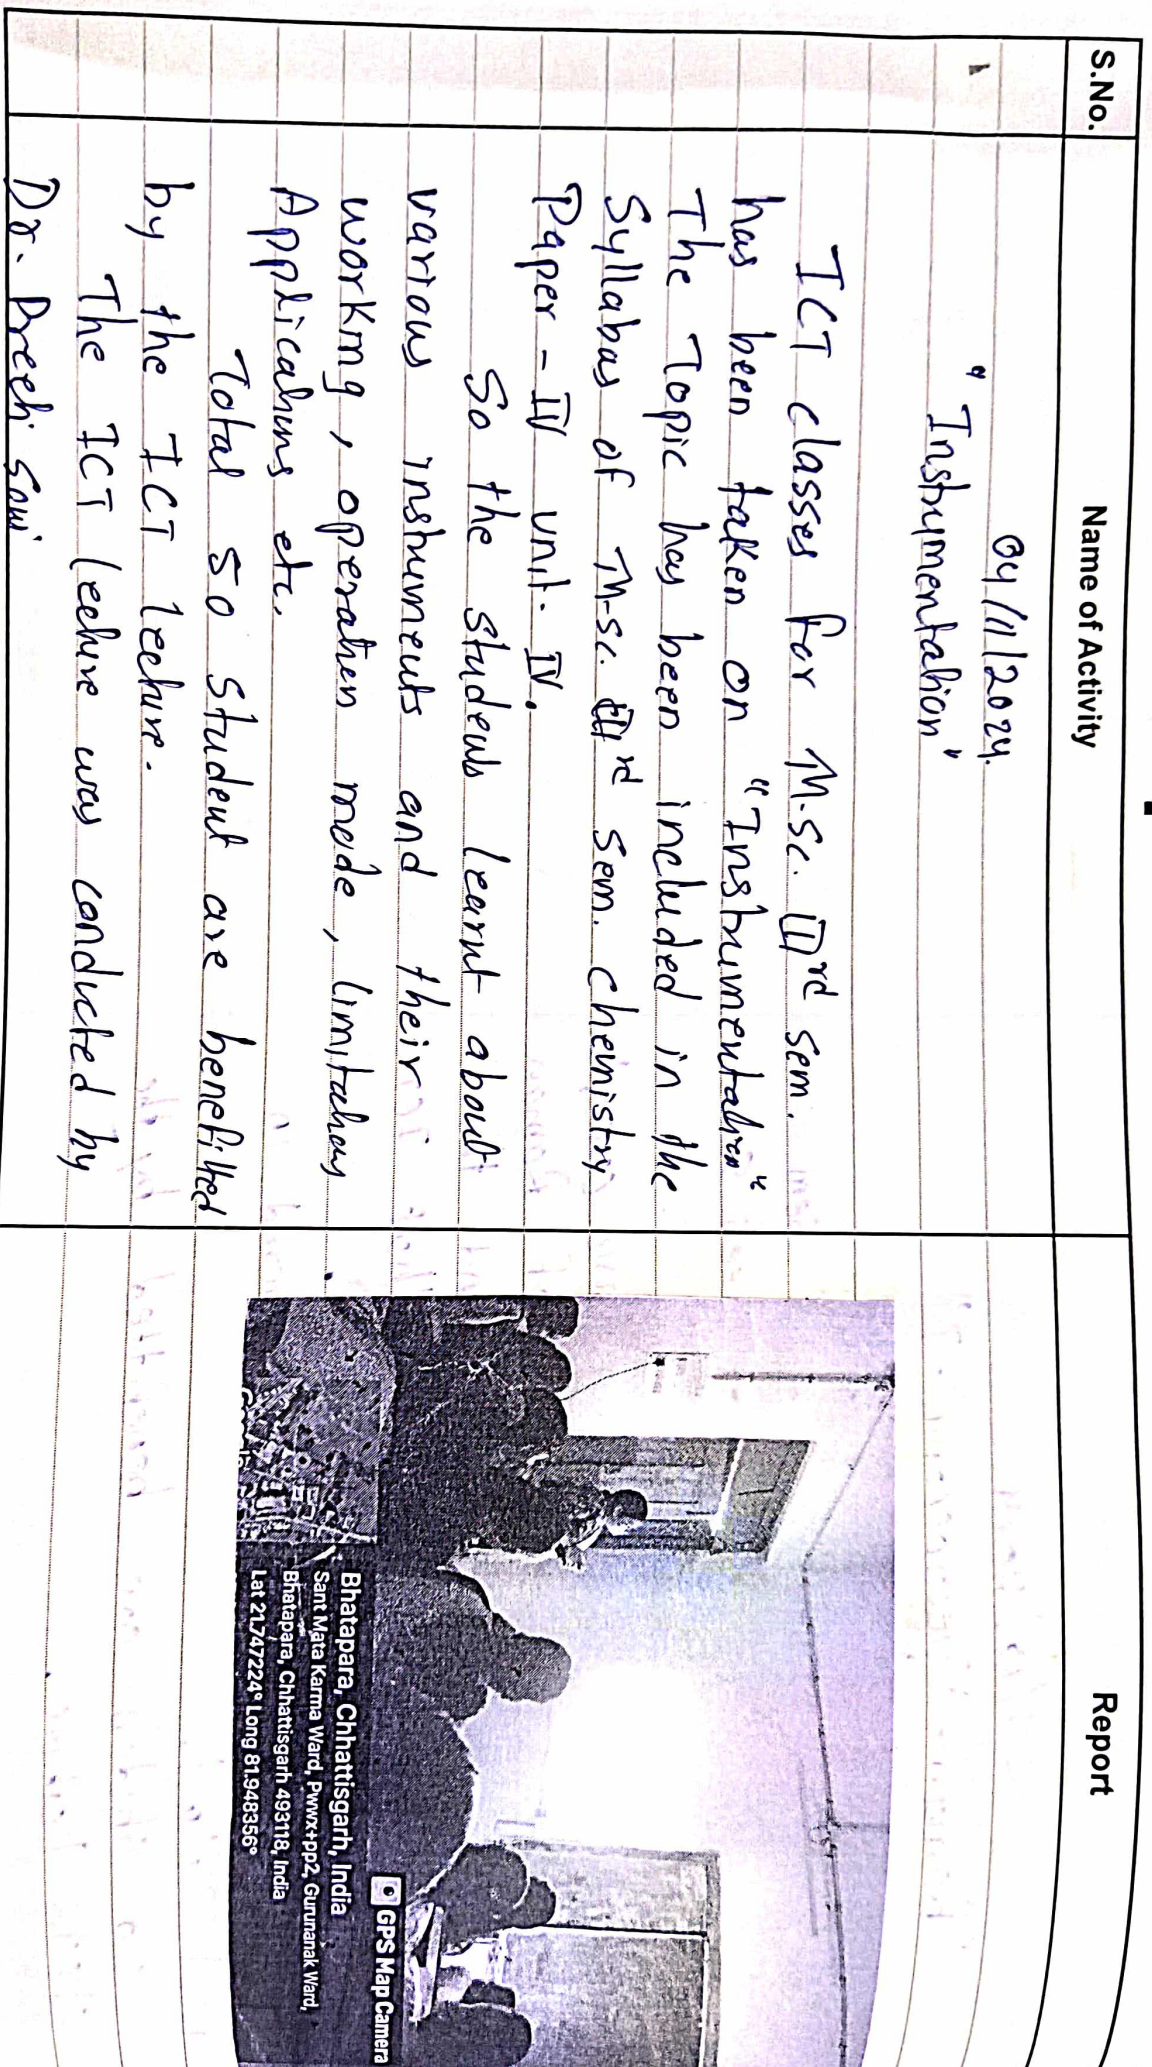 S.No. Name of Activity Report
04/11/2024.
"Instrumentation"
ICT classes for M.Sc. IIIrd Sem.
has been taken on "Instrumentation"
The Topic has been included in the
Syllabus of M.Sc. IIIrd Sem. Chemistry
Paper-IV unit-IV.
So the students learnt about
various instruments and their
working, operation mode, limitations
Applications etc.
Total 50 student are benefitted
by the ICT lecture.
The ICT lecture was conducted by
Dr. Preeti
GPS Map Camera
Bhatapara, Chhattisgarh, India
Sant Mata Karma Ward, Pwwx+pp2, Gurunanak Ward,
Bhatapara, Chhattisgarh 493118, India
Lat 21.747224° Long 81.948356°